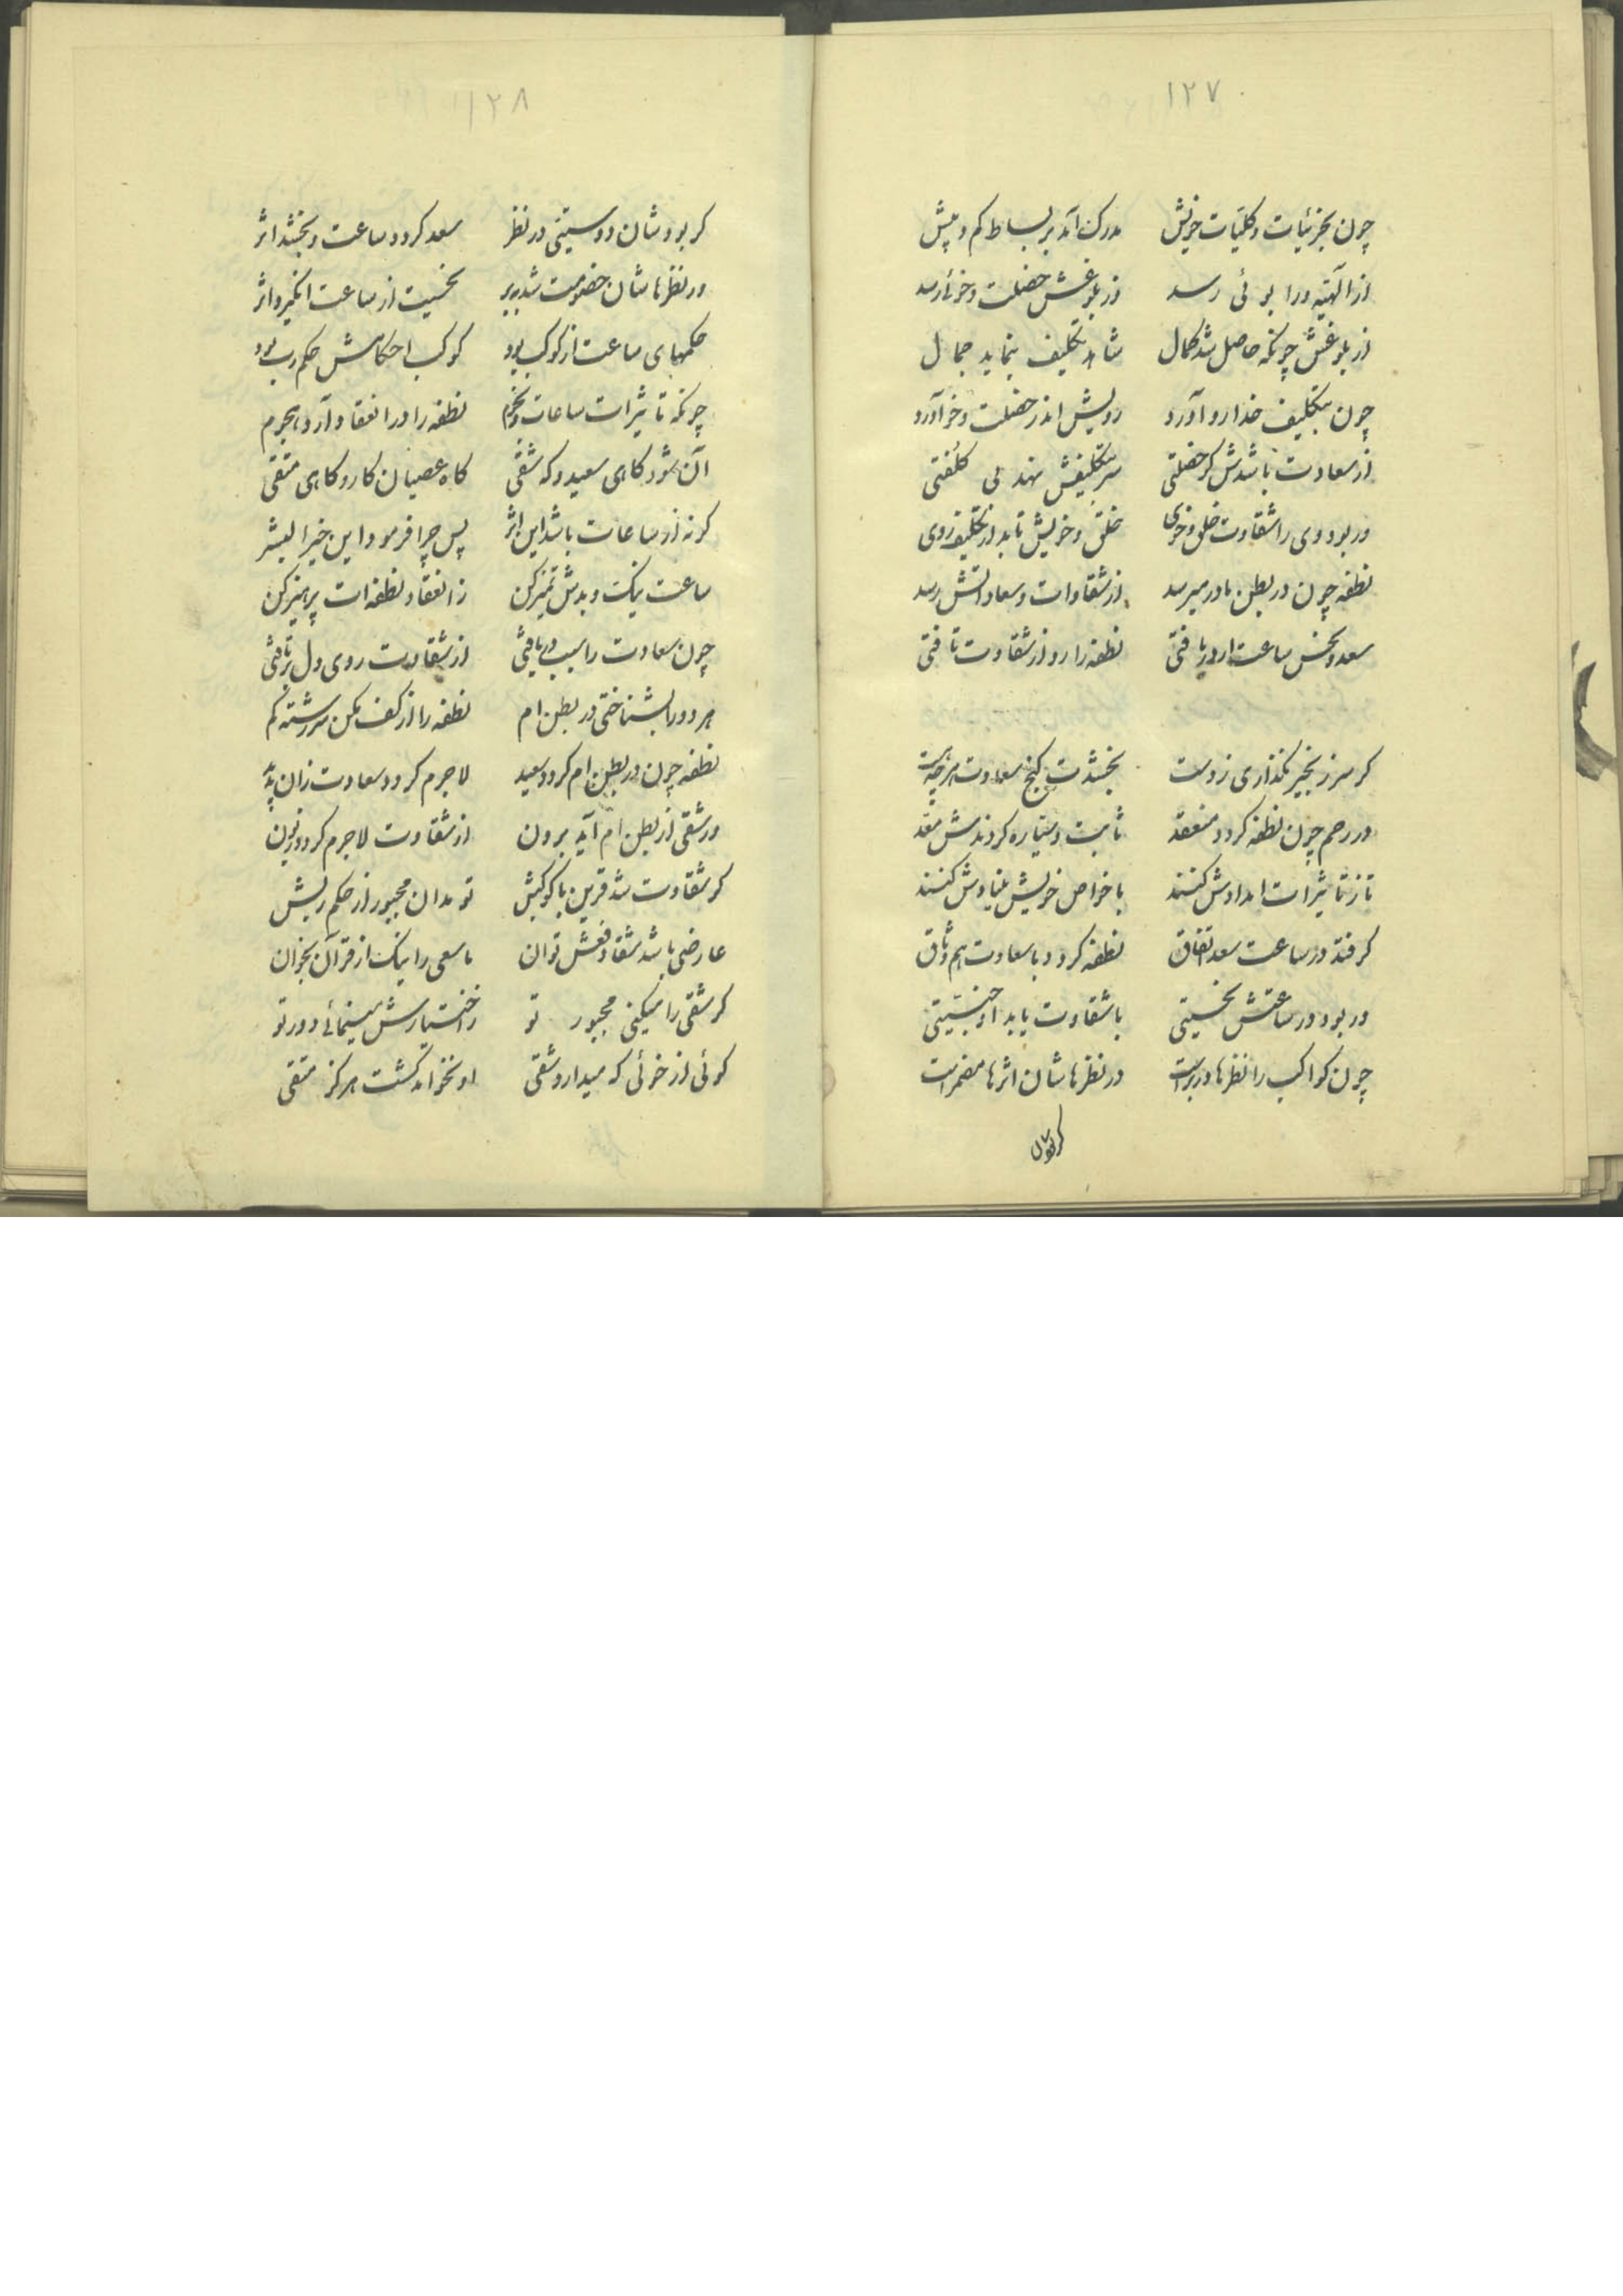 ۱۲۷
چون بجزئیات و کلیات خویش مدرک آمد بر بساط کم و بیش
از الهیه ورا بوئی رسد وز بلوغش خصلت و خوئی رسد
از بلوغش چونکه حاصل شد کمال شاهد تکلیف بنماید جمال
چون بتکلیف خدا رو آورد رویش اندر خصلت و خو آورد
از سعادت باشدش کر خصلتی سر بتکلیفش نهد بی کلفتی
ور بود وی را شقاوت خلق و خوی خلق و خویش تابد از تکلیف روی
نطفه چون در بطن مادر میرسد از شقاوات و سعاداتش رسد
سعد و نحس ساعت ار دریافتی نطفه را رو از شقاوت تافتی
کر سر زنجیر نگذاری ز دست بخشدت کنج سعادت هرچه هست
در رحم چون نطفه کردد منعقد ثابت و سیاره کردندش معد
تا ز تاثیرات امدادش کنند با خواص خویش بنیادش کنند
کر فتد در ساعت سعد اتفاق نطفه کردد با سعادت هم وثاق
ور بود در ساعتش نحسیتی با شقاوت یابد او جنسیتی
چون کواکب را نظرها در بر است در نظرهاشان اثرها مضمر است
کر بودشان
۱۲۸
کر بودشان دوستیتی در نظر سعد کردد ساعت و بخشد اثر
ور نظرهاشان خصومت شد ببر نحسیت از ساعت انگیزد اثر
حکمهای ساعت از کوکب بود کوکب احکامش حکم رب بود
چونکه تاثیرات ساعات و نجوم نطفه را در انعقاد آرد هجوم
آن شود کاهی سعید و که شقی کاه عصیان کار و کاهی متقی
کرنه از ساعات باشد این اثر پس چرا فرمود این خیر البشر
ساعت نیک و بدش تمیز کن ز انعقاد نطفه‌ات پرهیز کن
چون سعادت را سبب دریافتی از شقاوت روی دل برتافتی
هر دو را بشناختی در بطن ام نطفه را از کف مکن سررشته کم
نطفه چون در بطن ام کردد سعید لاجرم کردد سعادت زان پدید
ور شقی از بطن ام آید برون از شقاوت لاجرم کردد زبون
کو شقاوت شد قرین با کوکبش تو مدان مجبور از حکم ربش
عارضی باشد شقا دفعش توان ما سعی را نیک از قرآن بخوان
کر شقی را میکنی مجبور تو ز اختیارش مینمائی دور تو
کوئی از خوئی که میدارد شقی او نخواهد کشت هرکز متقی